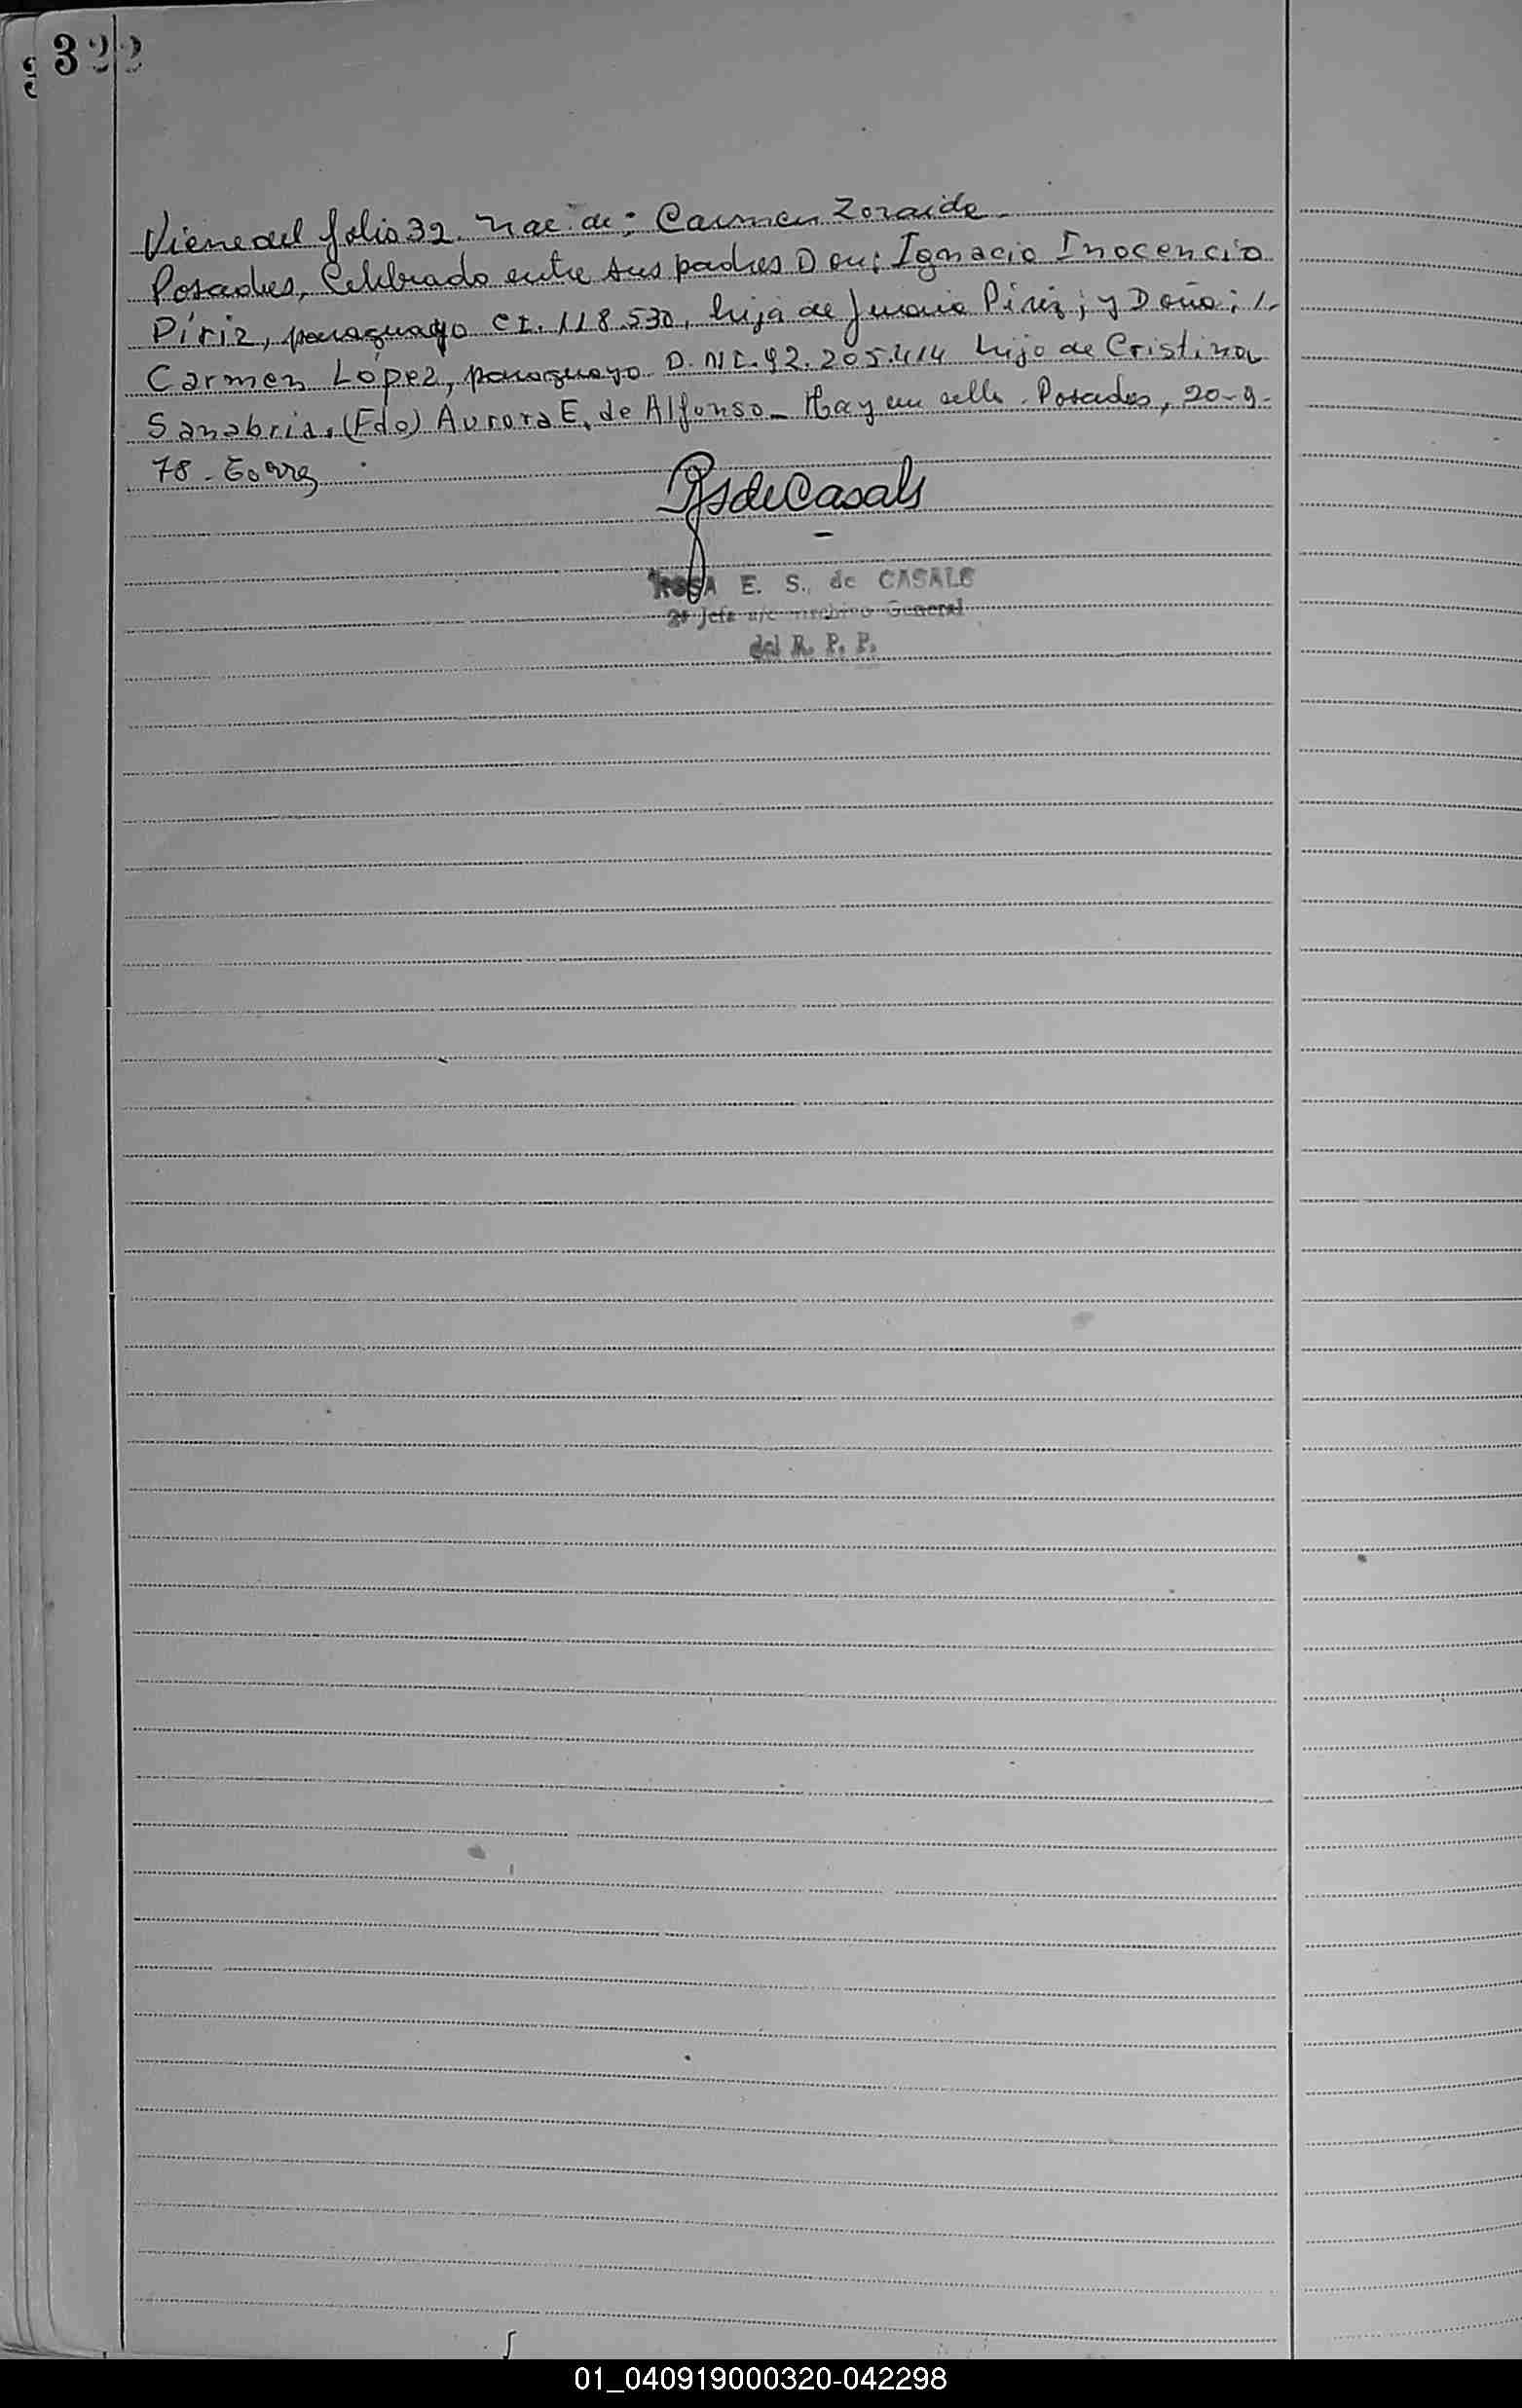 322
Viene del folio 32. Nac. de: Carmen Zoraide.
Posadas, Celebrado entre sus padres Don: Ignacio Inocencio
Píriz, paraguayo C.I. 118.530, hijo de Juana Píriz; y Doña; 1.
Carmen López, paraguaya D.N.I. 92.205.414 hija de Cristina
Sanabria. (Fdo) Aurora E. de Alfonso_ Hay un sello. Posadas, 20-9-
78-
RSdeCasals
ROSA E. S. de CASALS
2ª Jefa a/c Archivo General
del R. P. P.
01_040919000320-042298